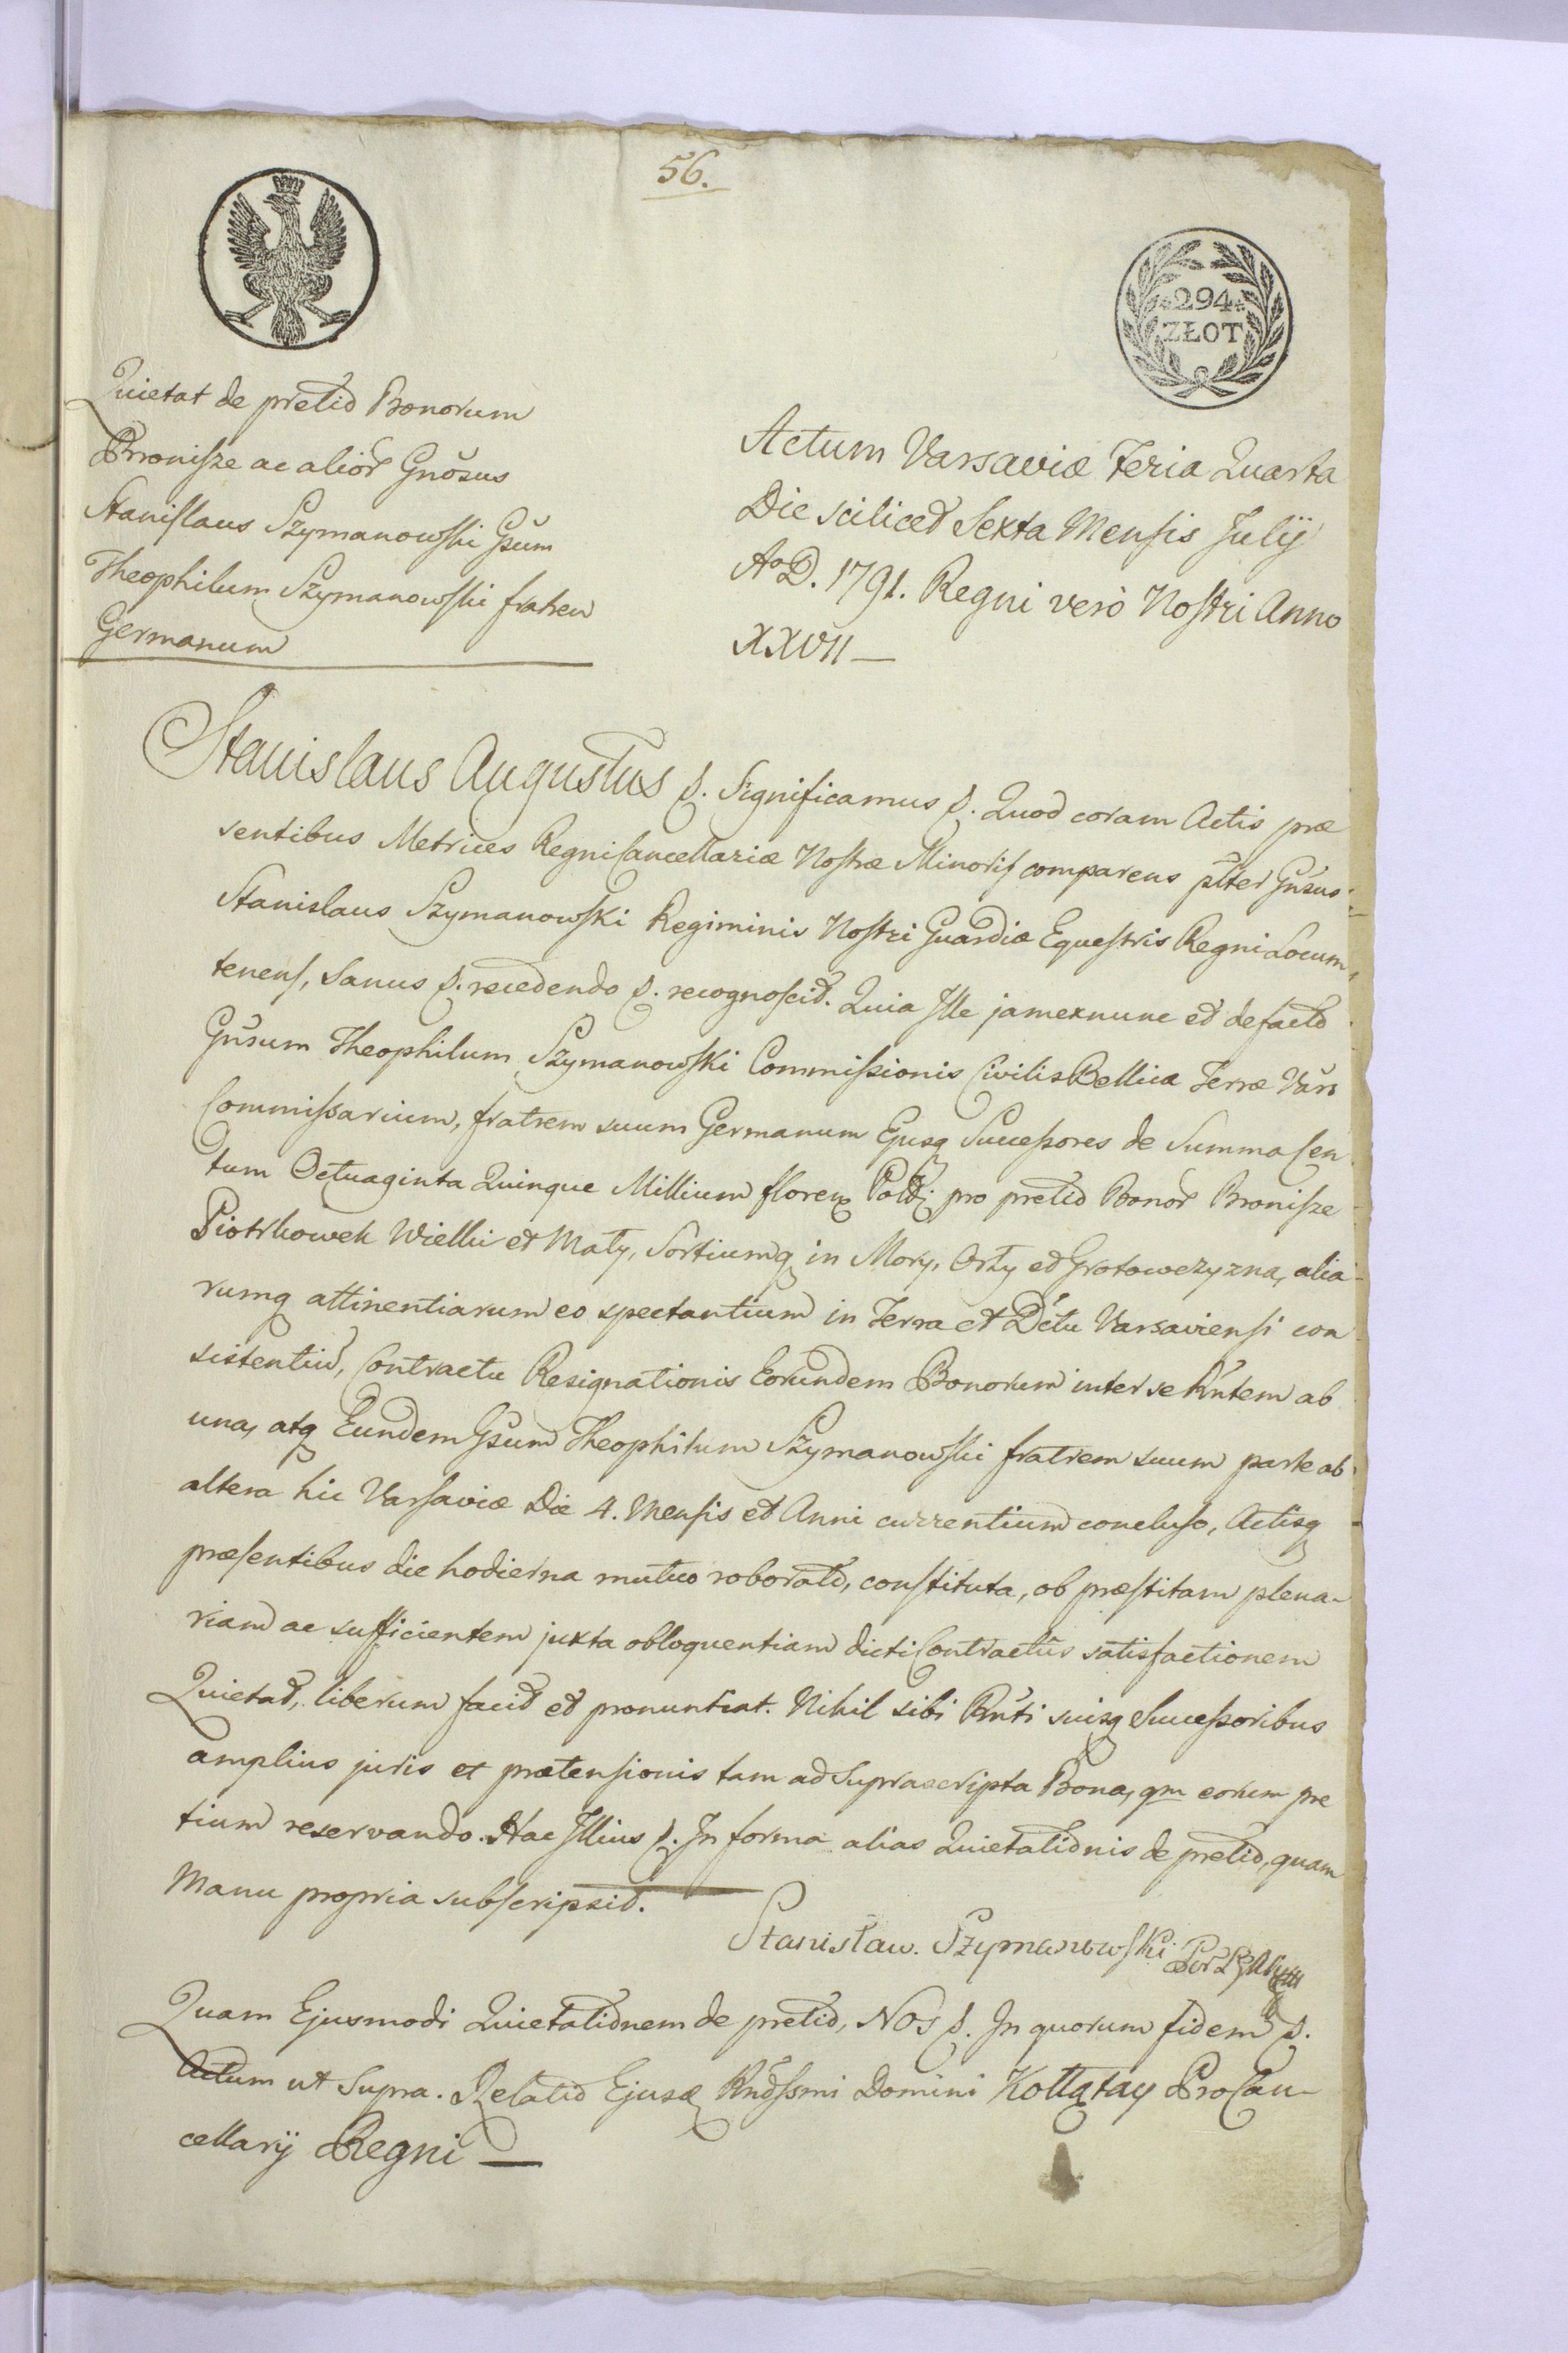 56.
294
ZŁOT
Quietat de pretio Bonorum
Bronisze ac alior Gnosus
Stanislaus Szymanowski Gsum
Theophilum Szymanowski fratrem
Germanum
Actum Varsaviæ Feria Quarta
Die scilicet Sexta Mensis Julij
Aº D. 1791. Regni verò Nostri Anno
XXVII —
Stanislaus Augustus &. Significamus &. Quod coram Actis præ
sentibus Metrices Regni Cancellariæ Nostræ Minoris comparens plter Gnsus
Stanislaus Szymanowski Regiminis Nostri Guardiæ Equestris Regni Locum
tenens, Sanus &. recedendo &. recognoscit. Quia Ille jam exnunc et defacto
Gnsum Theophilum Szymanowski Commissionis Civilis Bellicæ Terræ Vars
Commissarium, fratrem suum Germanum Ejusq Successores de Summa Cen
tum Octuaginta Quinque Millium floren Polo: pro pretio Bonor Bronisze
Piotrkowek Wielki et Mały, Sortiumq in Mory, Orły et Grotowczyzna, alia
rumq attinentiarum eo spectantium in Terra et Dctu Varsaviensi con
sistentiu, Contractu Resignationis Eorundem Bonorum inter se Rntem ab
una, atq Eundem Gsum Theophilum Szymanowski fratrem suum parte ab
altera hic Varsaviæ Die 4. Mensis et Anni currentium concluso, Actisq
præsentibus die hodierna mutuo roborato, constituta, ob præstitam plena-
riam ac sufficientem juxta obloquentiam dicti Contractûs satisfactionem
Quietat, liberum facit et pronuntiat. Nihil sibi Rnti suisq Successoribus
amplius juris et prætensionis tam ad Suprascripta Bona, qm eorum pre
tium reservando. Hac Illius &. In forma alias Quietationis de pretio, quam
Manu propria subscripsit.
Stanisław. Szymanowski
Quam Ejusmodi Quietationem de pretio, Nos &. In quorum fidem &.
Actum ut Supra. Relatio Ejusq Rndssmi Domini Kołłątay ProCan-
cellarij Regni —